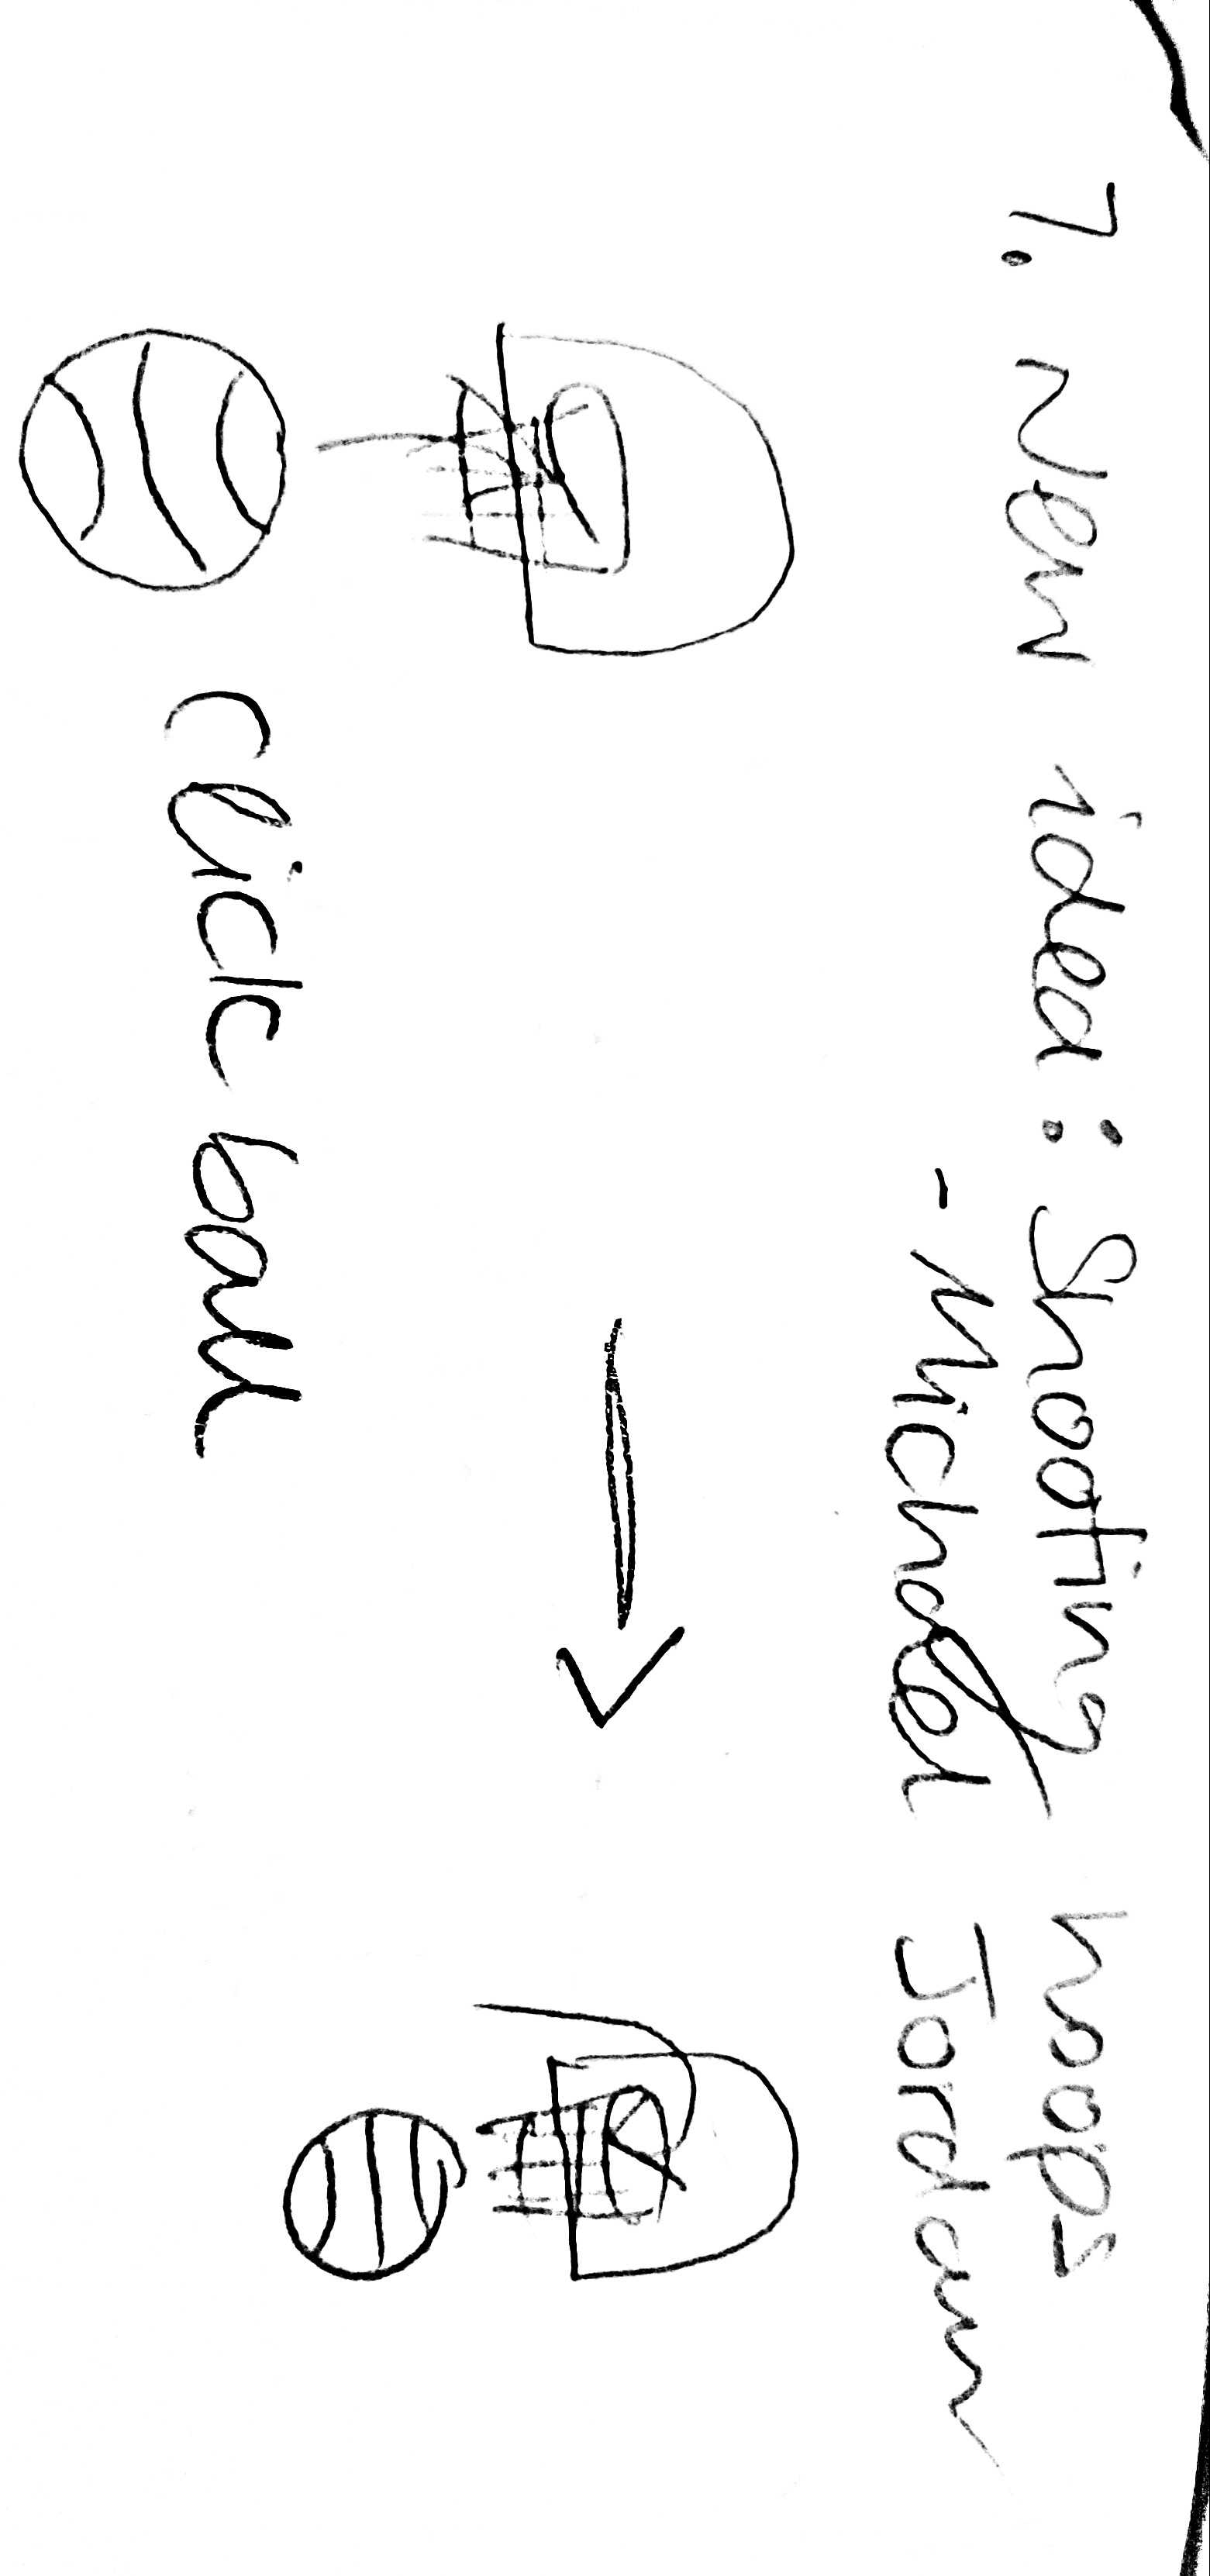 7. New idea: Shooting hoops
- Michael Jordan
click ball